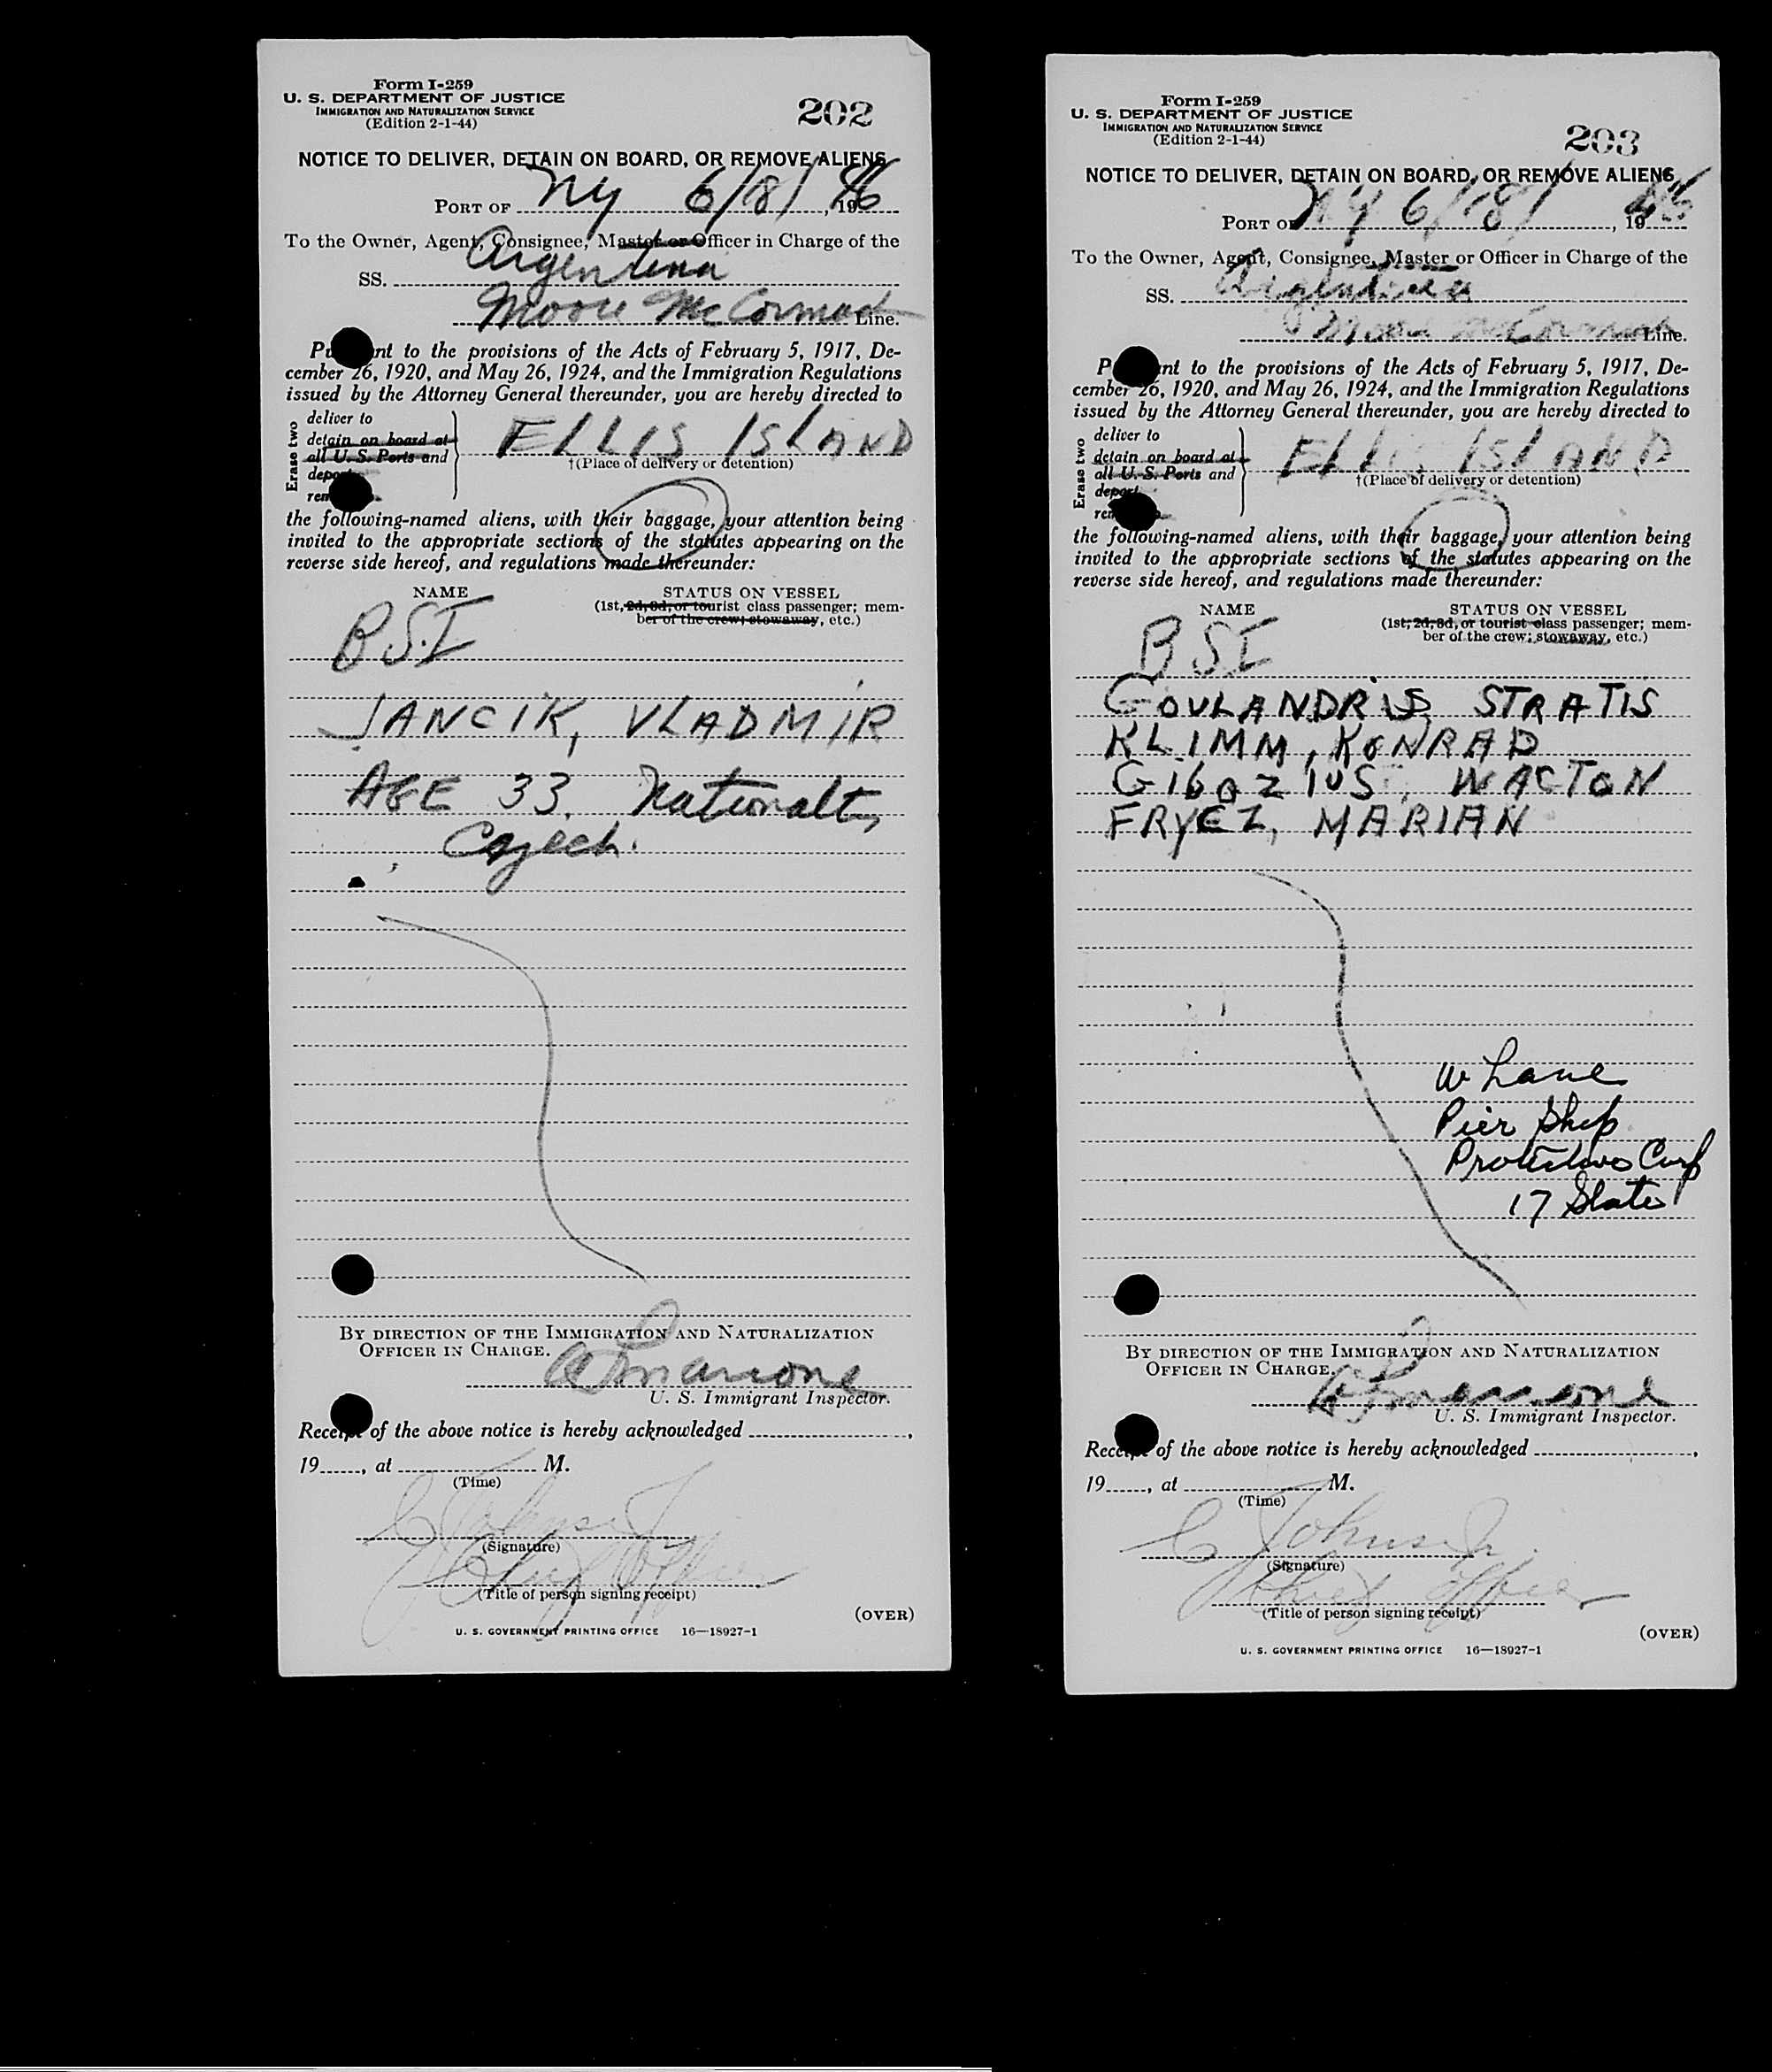 Form I-259
U. S. DEPARTMENT OF JUSTICE
IMMIGRATION AND NATURALIZATION SERVICE
(Edition 2-1-44)
202
NOTICE TO DELIVER, DETAIN ON BOARD, OR REMOVE ALIENS
PORT OF NY 6/8/, 1946
To the Owner, Agent, Consignee, Master or Officer in Charge of the
SS. Argentina
Moore McCormack Line.
nt to the provisions of the Acts of February 5, 1917, De-
cember 26, 1920, and May 26, 1924, and the Immigration Regulations
issued by the Attorney General thereunder, you are hereby directed to
Erase two
deliver to
detain on board at
all U. S. Ports and
ELLIS ISLAND
†(Place of delivery or detention)
the following-named aliens, with their baggage, your attention being
invited to the appropriate sections of the statutes appearing on the
reverse side hereof, and regulations made thereunder:
NAME
STATUS ON VESSEL
(1st, 2d, 3d, or tourist class passenger; mem-
ber of the crew; stowaway, etc.)
B.S.I
JANCIK, VLADMIR
AGE 33. Nationalty
Czech.
BY DIRECTION OF THE IMMIGRATION AND NATURALIZATION
OFFICER IN CHARGE.
U. S. Immigrant Inspector.
Receipt of the above notice is hereby acknowledged ,
19 , at M.
(Time)
(Signature)
Chief Officer
(Title of person signing receipt)
(OVER)
U. S. GOVERNMENT PRINTING OFFICE 16—18927-1
Form I-259
U. S. DEPARTMENT OF JUSTICE
IMMIGRATION AND NATURALIZATION SERVICE
(Edition 2-1-44)
203
NOTICE TO DELIVER, DETAIN ON BOARD, OR REMOVE ALIENS
PORT OF NY 6/8/, 1946
To the Owner, Agent, Consignee, Master or Officer in Charge of the
SS. Argentina
Moore McCormack Line.
nt to the provisions of the Acts of February 5, 1917, De-
cember 26, 1920, and May 26, 1924, and the Immigration Regulations
issued by the Attorney General thereunder, you are hereby directed to
Erase two
deliver to
detain on board at
all U. S. Ports and
ELLIS ISLAND
†(Place of delivery or detention)
the following-named aliens, with their baggage, your attention being
invited to the appropriate sections of the statutes appearing on the
reverse side hereof, and regulations made thereunder:
NAME
STATUS ON VESSEL
(1st, 2d, 3d, or tourist class passenger; mem-
ber of the crew; stowaway, etc.)
B S I
GOULANDRIS STRATIS
KLIMM, KONRAD
WACTON
FRYCZ, MARIAN
W Lane
Pier Ship
Protective Corp
17 State
BY DIRECTION OF THE IMMIGRATION AND NATURALIZATION
OFFICER IN CHARGE.
U. S. Immigrant Inspector.
Receipt of the above notice is hereby acknowledged ,
19 , at M.
(Time)
C Johnson
(Signature)
Chief Officer
(Title of person signing receipt)
(OVER)
U. S. GOVERNMENT PRINTING OFFICE 16—18927-1